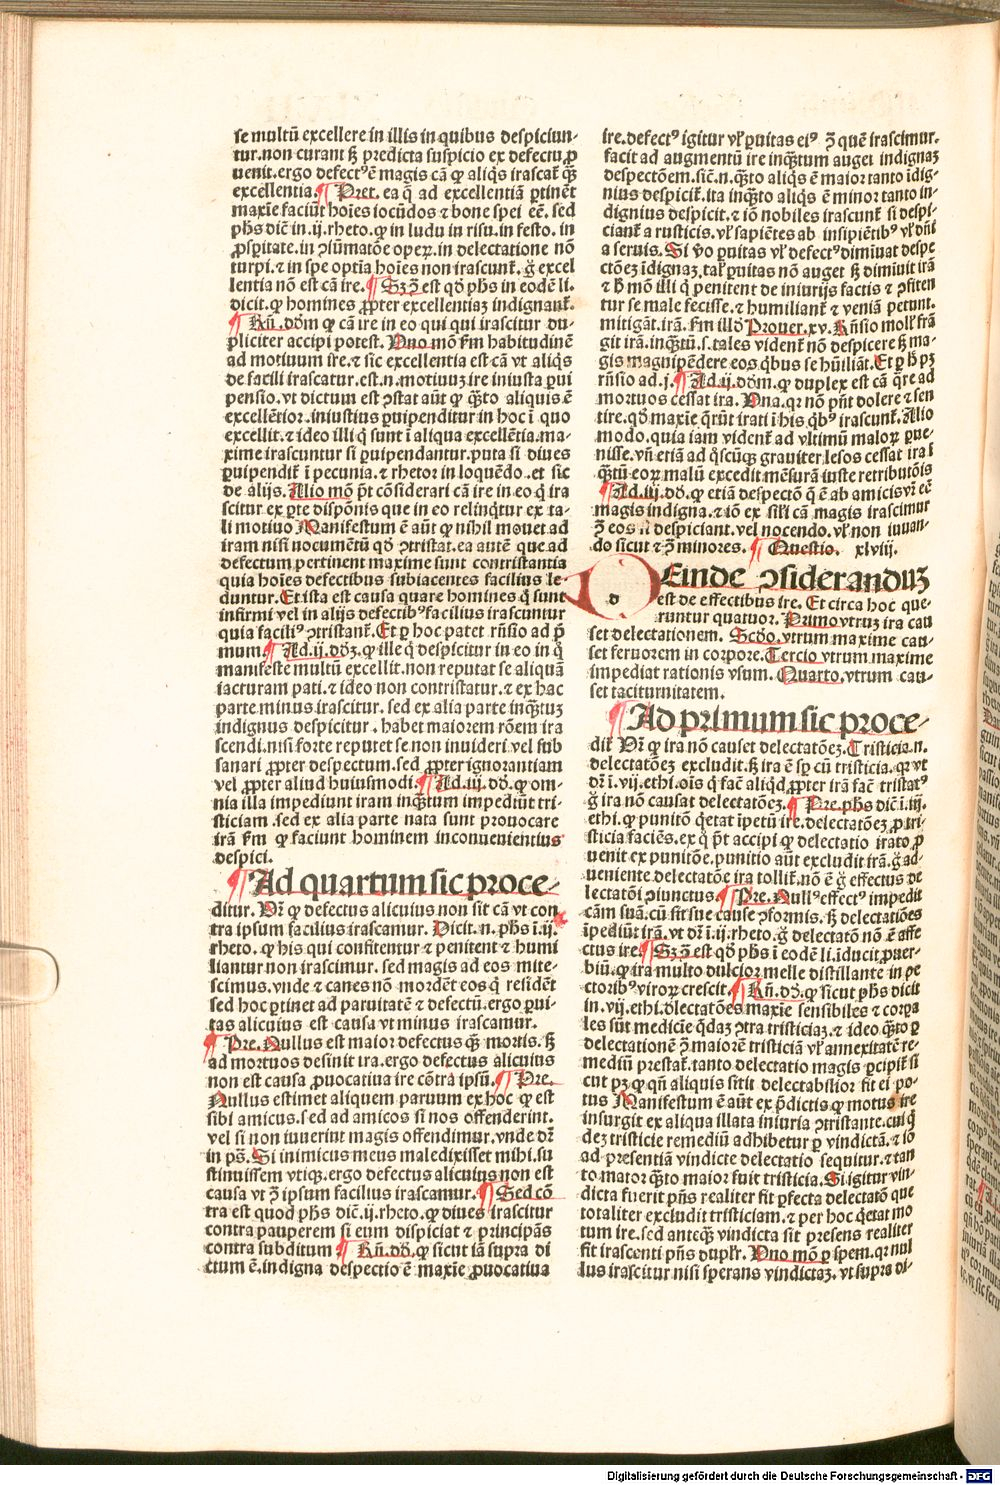 se multū excellere in illis in quibus despiciun-
tur. non curant sꝫ predicta suspicio ex defectu ꝓ
uenit. ergo defectꝰ ē magis cā ꝙ aliqͥs irascat̄ qᷓꝫ
excellentia. ¶ Pret. ea q̄ ad excellentiā ꝑtinēt
maxīe faciūt hoīes iocūdos ⁊ bone spei eē. sed
ph̄s dic̄ in .ij. rheto. ꝙ in ludu in risu. in festo. in
ꝓspitate. in ꝯsūmatōe oꝑeꝝ. in delectatione nō
turpi. ⁊ in spe optīa hoīes non irascunt̄. g̊ excel
lentia nō est cā ire. ¶ Sꝫ ꝯ̄ est qd̄ ph̄s in eodē li.
dicit. ꝙ homines ꝓpter excellentiaꝫ indignant̄.
¶ Rn̄. dd̄m ꝙ cā ire in eo qui qui irascitur du-
pliciter accipi potest. Uno mō ẜm habitudinē
ad motiuum ire. ⁊ sic excellentia est cā vt aliqͥs
de facili irascatur. est .n. motiuuꝫ ire iniusta ꝑui
pensio. vt dictum est ꝯstat aūt ꝙ qᷓꝫto aliquis ē
excellētior. iniustius ꝑuipenditur in hoc ī quo
excellit. ⁊ ideo illi qͥ sunt ī aliqua excellētia. ma-
xime irascuntur si ꝑuipendantur. puta si diues
ꝑuipendit̄ ī pecunia. ⁊ rhetoꝛ in loquēdo. et sic
de alijs. Alio mō pt̄ cōsiderari cā ire in eo qͥ ira
scitur ex ꝑte dispōnis que in eo relinqͥtur ex ta-
li motiuo Manifestum ē aūt ꝙ nihil mouet ad
iram nisi nocumētū qd̄ ꝯtristat. ea autē que ad
defectum pertinent maxime sunt contristantia
quia hoīes defectibus subiacentes facilius le-
duntur. Et ista est causa quare homines qͥ sunt
infirmi vel in alijs defectibꝰ facilius irascuntur
quia faciliꝰ ꝯtristant̄. Et ꝑ hoc patet rn̄sio ad pͥ
mum. ¶ Ad .ij. dd̄ꝫ. ꝙ ille qͥ despicitur in eo in qͦ
manifeste multū excellit. non reputat se aliquā
iacturam pati. ⁊ ideo non contristatur. ⁊ ex hac
parte minus irascitur. sed ex alia parte inqᷓꝫtuꝫ
indignus despicitur. habet maiorem rōem ira
scendi. nisi forte reputet se non inuideri vel sub
sanari ꝓpter despectum. sed ꝓpter ignorantiam
vel ꝓpter aliud huiusmodi. ¶ Ad .iij. dd̄. ꝙ om-
nia illa impediunt iram inqᷓꝫtum impediūt tri-
sticiam. sed ex alia parte nata sunt prouocare
irā ẜm ꝙ faciunt hominem inconuenientius
despici.
¶ Ad quartum sic proce-
ditur. Vr̄ ꝙ defectus alicuius non sit cā vt con
tra ipsum facilius irascamur. Dicit .n. ph̄s ī .ij.
rheto. ꝙ his qui confitentur ⁊ penitent ⁊ humi
liantur non irascimur. sed magis ad eos mite-
scimus. vnde ⁊ canes nō mordēt eos qͥ resídēt
sed hoc ꝑtinet ad paruitatē ⁊ defectū. ergo ꝑui-
tas alicuius est causa vt minus irascamur.
¶ Pre. Nullus est maior defectus qᷓꝫ mortis. sꝫ
ad mortuos desinit ira. ergo defectus alicuius
non est causa ꝓuocatiua ire cōtra ipsū. ¶ Pre.
Nullus estimet aliquem paruum ex hoc ꝙ est
sibi amicus. sed ad amicos si nos offenderint.
vel si non iuuerint magis offendimur. vnde dr̄
in pṣ̄. Si inimicus meus maledixisset mihi. su
stinuissem vtiqꝫ. ergo defectus alicuius non est
causa vt ꝯ̄ ipsum facilius irascamur. ¶ Sed cō
tra est quod ph̄s dic̄ .ij. rheto. ꝙ diues irascitur
contra pauperem si eum dispiciat ⁊ principās
contra subditum. ¶ Rn̄. dd̄. ꝙ sicut iā supra di
ctum ē. indigna despectio ē maxīe ꝓuocatiua
ire. defectꝰ igitur vl̓ ꝑuitas eiꝰ ꝯ̄ quē irascimur.
facit ad augmentū ire inqᷓꝫtum auget indignaꝫ
despectōem. sic̄ .n. qᷓꝫto aliqͥs ē maior tanto īdig-
nius despicit̄. ita inqᷓꝫto aliqͥs ē minor tanto in-
dignius despicit. ⁊ iō nobiles irascunt̄ si despi-
ciant̄ a rusticis. vl̓ sapiētes ab insipiētibꝰ vl̓ dn̄i
a seruis. Si v̄o ꝑuitas vl̓ defectꝰ diminuat despe
ctōeꝫ īdignaꝫ. tal̓ ꝑuitas nō auget sꝫ dimiuit irā
⁊ h̄ mō illi qͥ penitent de iniurijs factis ⁊ ꝯfiten
tur se male fecisse. ⁊ humiliant̄ ⁊ veniā petunt.
mitigāt. irā. ẜm illd̄ Prouer. xv. Rn̄sio moll̓ frā
git irā. inqᷓꝫtū .s. tales vident̄ nō despicere sꝫ ma-
gis magnipēdere eos qͥbus se hūiliāt. Et ꝑ h̄ pꝫ
rn̄sio ad .j. ¶ Ad .ij. dd̄m. ꝙ duplex est cā q̄re ad
mortuos cessat ira. Una. qꝛ nō pn̄t dolere ⁊ sen
tire. qd̄ maxīe q̄rūt irati ī his qͥbꝰ irascunt̄. Alio
modo. quia iam vident̄ ad vltimū maloꝝ ꝑue-
nisse. vn̄ etiā ad qͦscūqꝫ grauiter lesos cessat ira ī
qᷓꝫtū eoꝝ malū excedit mēsurā iuste retributōis
¶ Ad .iij. dd̄. ꝙ etiā despectō q̄ ē ab amicis vr̄ eē
magis indigna. ⁊ iō ex sil̓i cā magis irascimur
ꝯ̄ eos si despiciant. vel nocendo. vl̓ non iuuan-
do sicut ⁊ ꝯ̄ minores. ¶ Questio. xlviij.
DEinde ꝯsideranduꝫ
est de effectibus ire. Et circa hoc que-
runtur quatuor. Primo vtruꝫ ira cau
set delectationem. Scd̄o. vtrum maxime cau-
set feruorem in corpore. Tercio vtrum maxime
impediat rationis vsum. Quarto. vtrum cau-
set taciturnitatem.
¶ Ad primum sic proce-
dit̄ Vr̄ ꝙ ira nō causet delectatōeꝫ. Tristicia .n.
delectatōeꝫ excludit. sꝫ ira ē sp̄ cū tristicia. qꝛ vt
dr̄ ī .vij. ethi. oīs qͥ fac̄ aliqͥd ꝓpter irā fac̄ tristatꝰ
g̊ ira nō causat delectatōeꝫ. ¶ Pre. ph̄s dic̄ ī .iiij.
ethi. ꝙ punitō qͥetat īpetū ire. delectatōeꝫ ꝓ tri-
sticia faciēs. ex qͦ pt̄ accipi ꝙ delectatio irato ꝓ
uenit ex punitōe. punitio aūt excludit irā. g̊ ad-
ueniente. delectatōe ira tollit̄. nō ē g̊ effectus de
lectatōi ꝯiunctus. ¶ Pre. Nullꝰ effectꝰ impedit
cām suā. cū sit sue cause ꝯformis. sꝫ delectatiōes
īpediūt irā. vt dr̄ ī .ij. rheto. g̊ delectatō nō ē affe
ctus ire. ¶ Sꝫ ꝯ̄ est qd̄ ph̄s ī eodē li. īducit ꝓuer-
biū. ꝙ ira multo dulcior melle distillante in pe
ctoribꝰ viroꝝ crescit. ¶ Rn̄. dd̄. ꝙ sicut ph̄s dicit
in .vij. ethi. dlectatōes maxīe sensibiles ⁊ corpa
les sūt medicīe qͣdaꝫ ꝯtra tristiciaꝫ. ⁊ ideo qᷓꝫto ꝑ
delectationē ꝯ̄ maiorē tristiciā vl̓ annexitatē re-
mediū prestat̄. tanto delectatio magis ꝑcipit̄ si
cut pꝫ ꝙ qn̄ aliquis sitit delectabilior fit ei po-
tus Manifestum ē aūt ex p̄dictis ꝙ motus ire
insurgit ex aliqua illata iniuria ꝯtristante. cui qͥ
deꝫ tristicie remediū adhibetur ꝑ vindictā. ⁊ iō
ad presentiā vindicte delectatio sequitur. ⁊ tan
to maior qᷓꝫto maior fuit tristicia. Si igitur vin-
dicta fuerit pn̄s realiter fit ꝑfecta delectatō que
totaliter excludit tristiciam. ⁊ per hoc qͥetat mo
tum ire. sed anteqᷓꝫ vindicta sit presens realiter
fit irascenti pn̄s dupl̓r. Uno mō ꝑ spem. qꝛ nul
lus irascitur nisi sperans vindictaꝫ. vt supra di-
Digitalisierung gefördert durch die Deutsche Forschungsgemeinschaft - DFG